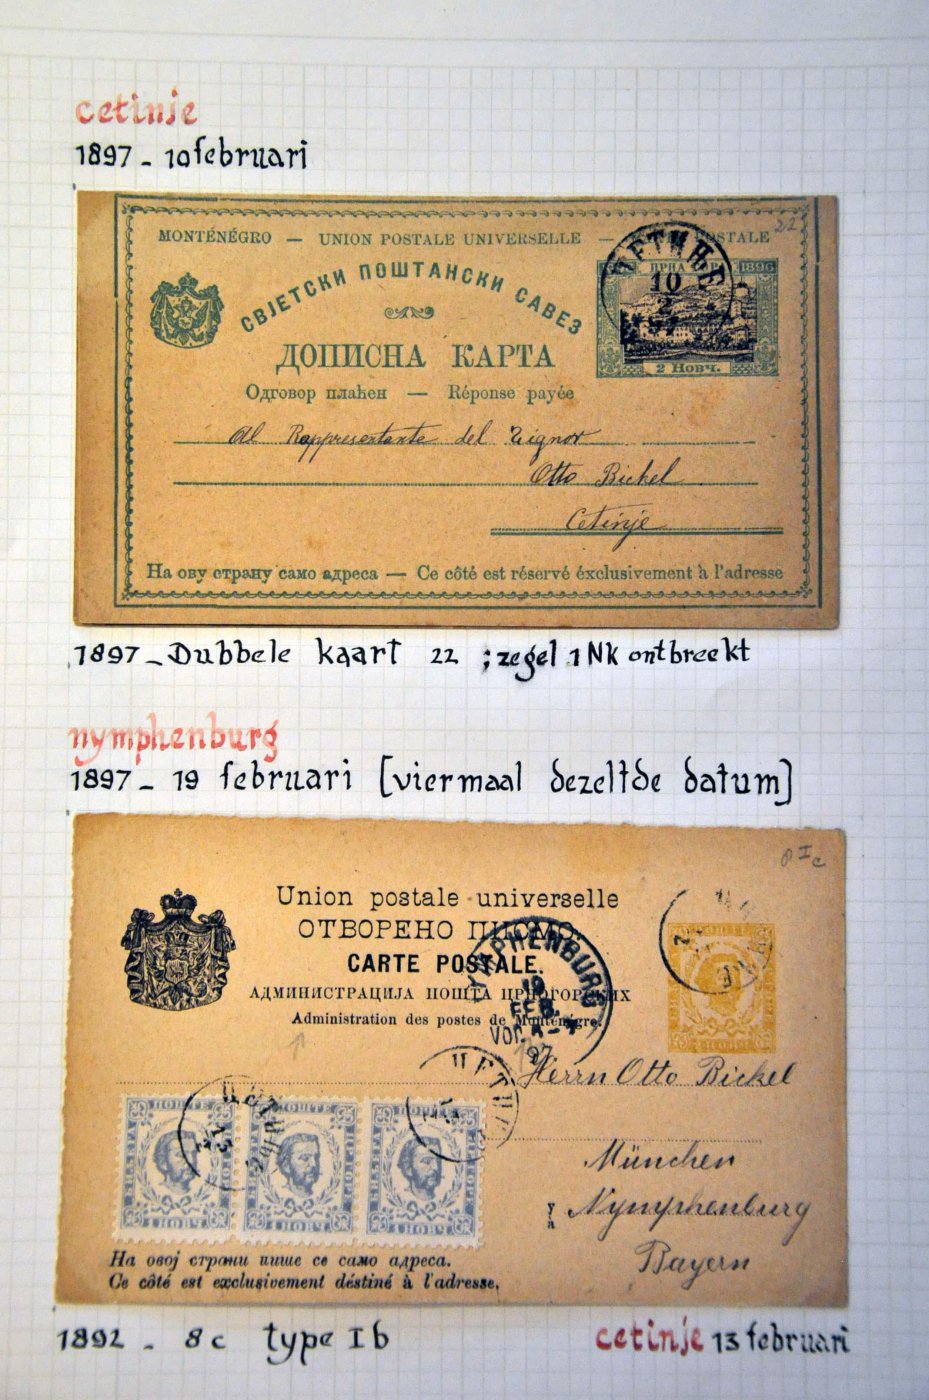 cetinje
1897 - 10 februari
22
MONTÉNÉGRO — UNION POSTALE UNIVERSELLE — POSTALE
СВЈЕТСКИ ПОШТАНСКИ САВЕЗ
ЦЕТИЊЕ
10
2
ЦРНА ГОРА 1896
2 Новч.
ДОПИСНА КАРТА
Одговор плаћен — Réponse payée
Al Rappresentante del Signor
Otto Bickel
Cetinje
На ову страну само адреса — Ce côté est réservé éxclusivement à l'adresse
1897 - Dubbele kaart 22 ; zegel 1 NK ontbreekt
nymphenburg
1897 - 19 februari [viermaal dezelfde datum]
8 I c
Union postale universelle
ОТВОРЕНО ПИСМО.
CARTE POSTALE.
АДМИНИСТРАЦИЈА ПОШТА ЦРНОГОРСКИХ
Administration des postes de Monténégro.
NYMPHENBURG
19
FEB.
97
Herrn Otto Bickel
München
Nymphenburg
Bayern
1 НОВЧ 1 НОВЧ 1 НОВЧ
На овој страни пише се само адреса.
Ce côté est exclusivement déstiné à l'adresse.
1892 - 8c type I b
cetinje 13 februari